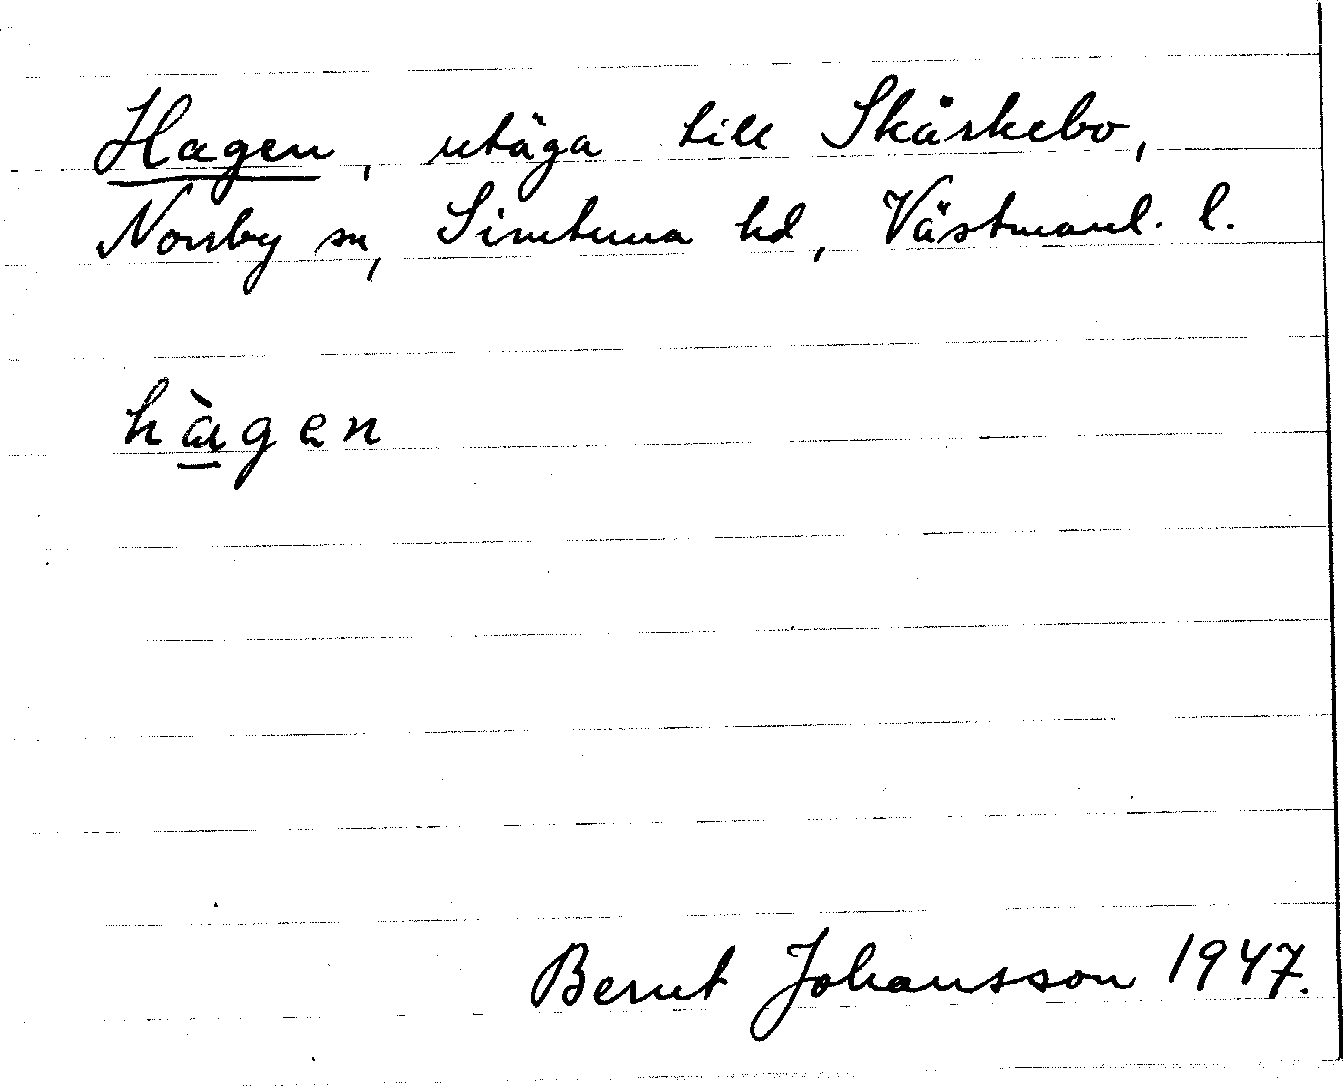 Hagen, utäga till Skäskebo,
Norrby sn, Simtuna hd, Västmanl. l.
hàgen
Bernt Johansson 1947.